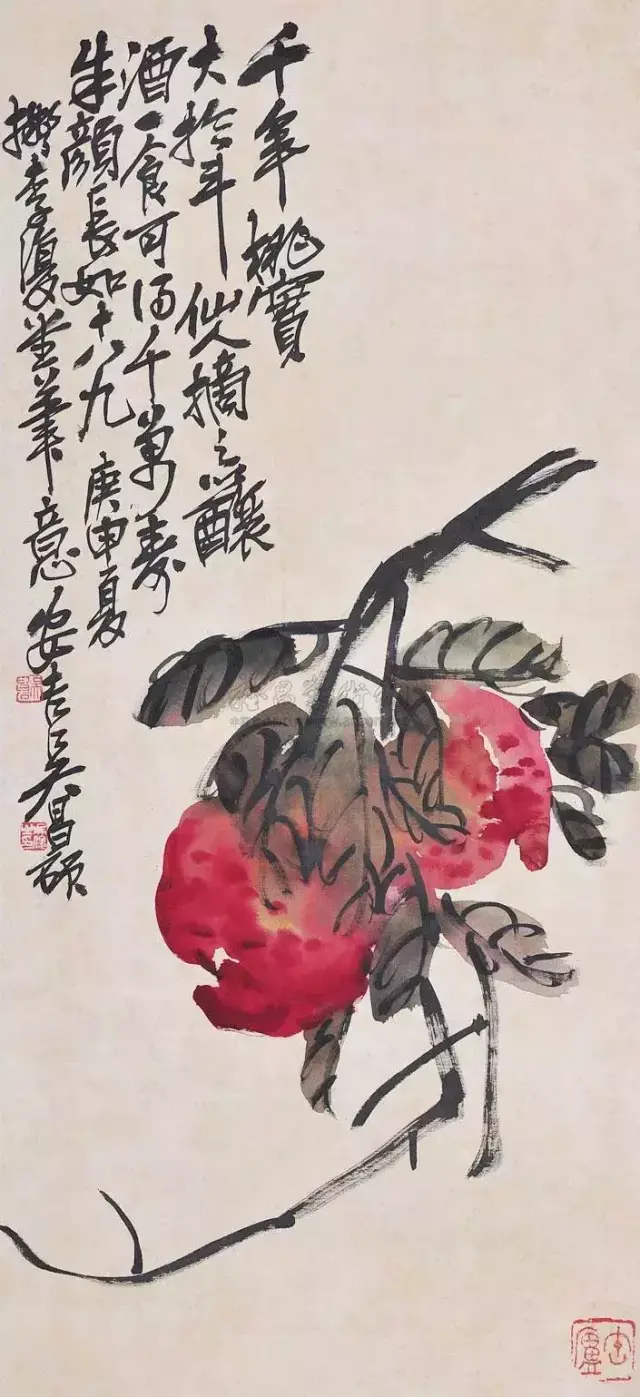 千年桃實
大於斗仙人摘之釀
酒一食可得千萬壽
朱顏長如十八九庚申夏
擬李復堂筆意安吉吳昌碩